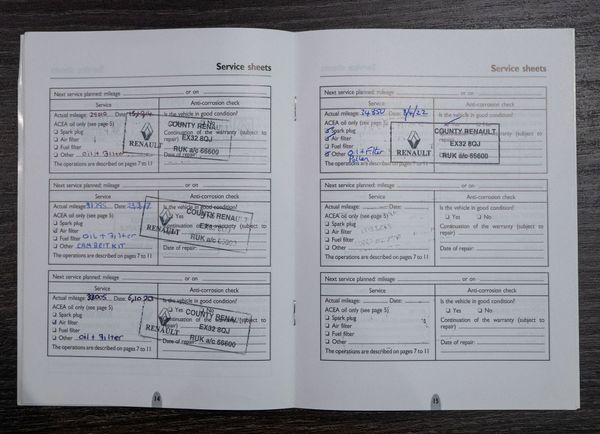 Service sheets
Next service planned: mileage or on
Service Anti-corrosion check
Actual mileage: Date:
Is the vehicle in good condition?
ACEA oil only (see page 5)
Spark plug
Air filter
Fuel filter
Other oil + filter
Continuation of the warranty (subject to repair)
Date of repair:
The operations are described on pages 7 to 11
RENAULT
COUNTY RENAULT
EX32 8QJ
RUK a/c 66600
Next service planned: mileage or on
Service Anti-corrosion check
Actual mileage: Date:
Is the vehicle in good condition?
ACEA oil only (see page 5)
Yes
Spark plug
Air filter
Fuel filter oil + filter
Other CAMBELT KIT
Continuation of the warranty (subject to repair)
Date of repair:
The operations are described on pages 7 to 11
RENAULT
COUNTY RENAU
Next service planned: mileage or on
Service Anti-corrosion check
Actual mileage: Date:
Is the vehicle in good condition?
ACEA oil only (see page 5)
Yes
Spark plug
Air filter
Fuel filter
Other oil + filter
Continuation of the warranty (subject to repair)
Date of repair:
The operations are described on pages 7 to 11
RENAULT
COUNTY RENAU
EX32 8QJ
RUK a/c 66600
14
Service sheets
Next service planned: mileage or on
Service Anti-corrosion check
Actual mileage: Date:
Is the vehicle in good condition?
ACEA oil only (see page 5)
Spark plug
Air filter
Fuel filter
Other Oil + Filter
Pollen
The operations are described on pages 7 to 11
RENAULT
COUNTY RENAULT
EX32 8QJ
RUK a/c 66600
Next service planned: mileage or on
Service Anti-corrosion check
Actual mileage: Date:
Is the vehicle in good condition?
ACEA oil only (see page 5)
Yes No
Spark plug
Air filter
Fuel filter
Other
Continuation of the warranty (subject to repair)
Date of repair:
The operations are described on pages 7 to 11
Next service planned: mileage or on
Service Anti-corrosion check
Actual mileage: Date:
Is the vehicle in good condition?
ACEA oil only (see page 5)
Yes No
Spark plug
Air filter
Fuel filter
Other
Continuation of the warranty (subject to repair)
Date of repair:
The operations are described on pages 7 to 11
15